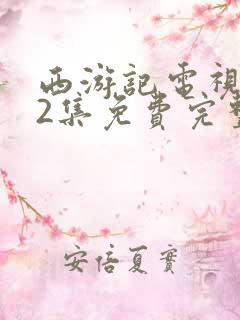 西游記電視
2集免費完整
安倍夏實